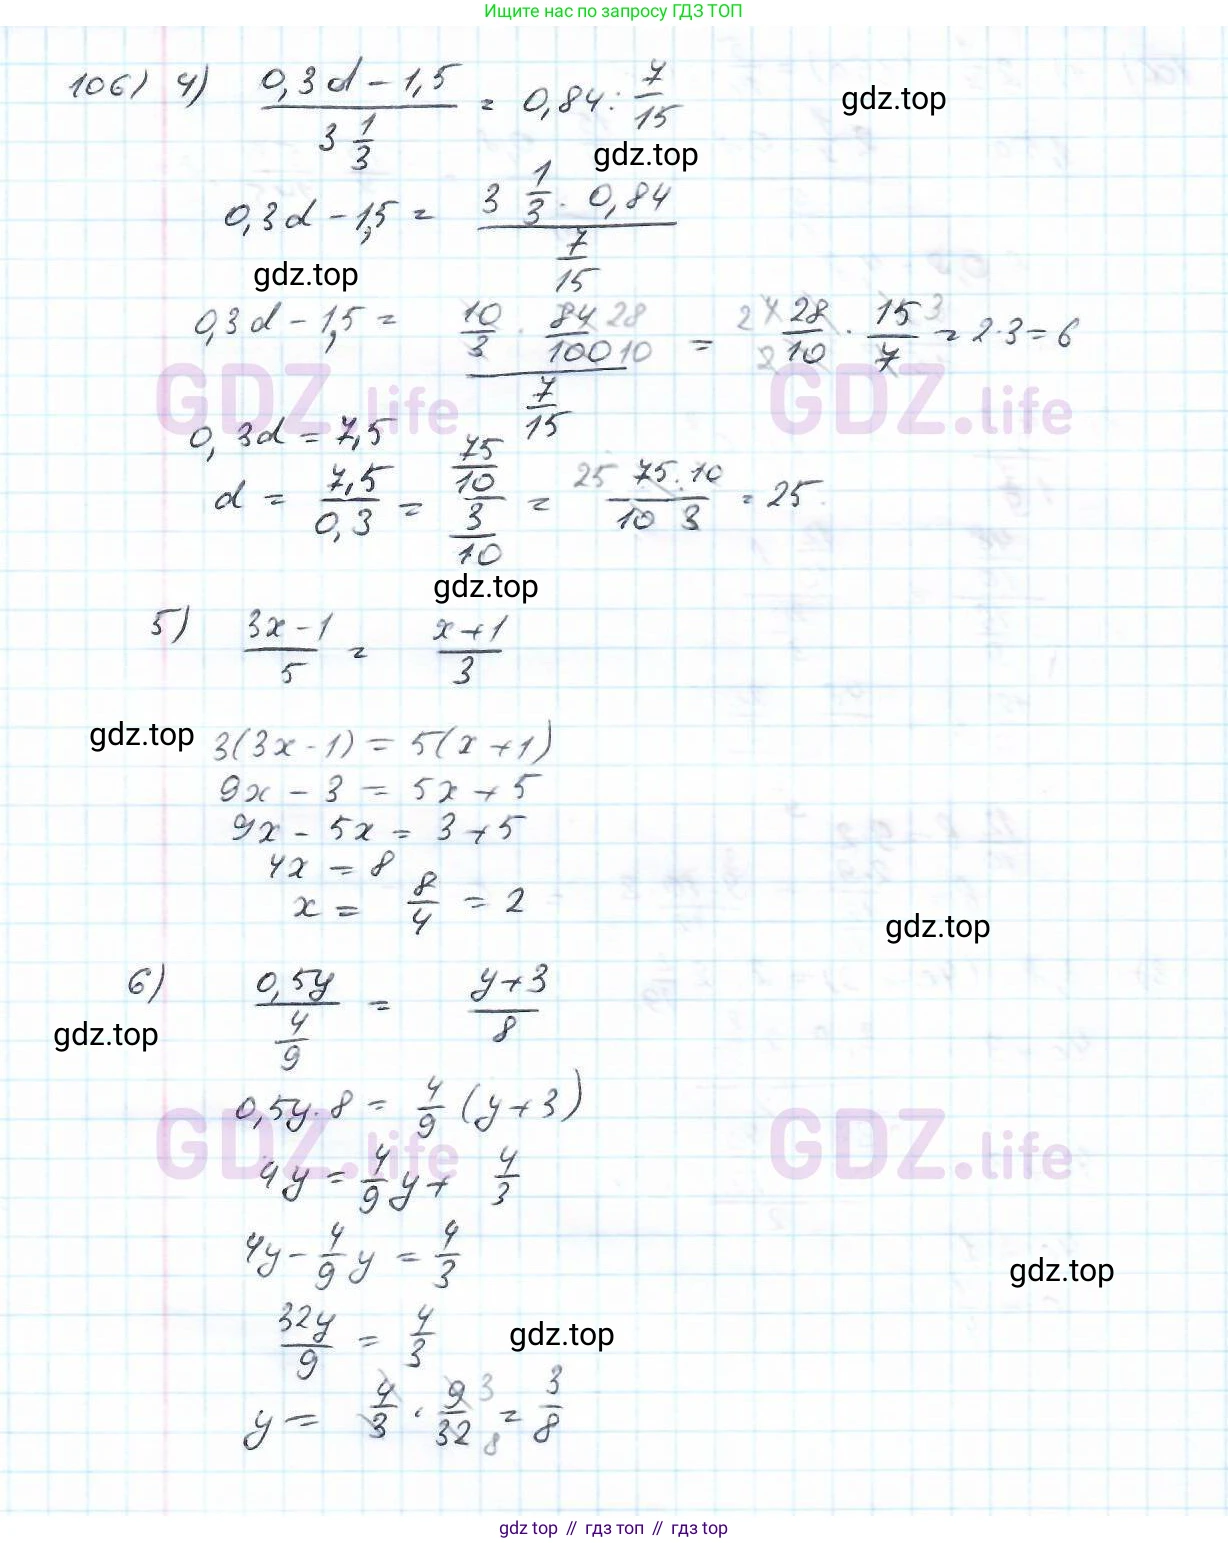 Ищите нас по запросу ГДЗ ТОП
106) 4) (0,3d − 1,5)/(3 1/3) = 0,84 : 7/15
gdz.top
gdz.top
0,3d − 1,5 = (3 1/3 · 0,84)/(7/15)
gdz.top
0,3d − 1,5 = (10/3 · 84 28/100 10)/(7/15) = 2 4 28/2 10 · 15 3/7 = 2·3 = 6
GDZ.life GDZ.life
0,3d = 7,5
d = 7,5/0,3 = (75/10)/(3/10) = 25 75·10/10 3 = 25.
gdz.top
5) (3x − 1)/5 = (x + 1)/3
gdz.top
3(3x − 1) = 5(x + 1)
9x − 3 = 5x + 5
9x − 5x = 3 + 5
4x = 8
x = 8/4 = 2
gdz.top
6) 0,5y/(4/9) = (y + 3)/8
gdz.top
0,5y · 8 = 4/9 (y + 3)
GDZ.life GDZ.life
4y = 4/9 y + 4/3
4y − 4/9 y = 4/3
gdz.top
32y/9 = 4/3
gdz.top
y = 4/3 · 9 3/32 8 = 3/8
gdz top // гдз топ // гдз top